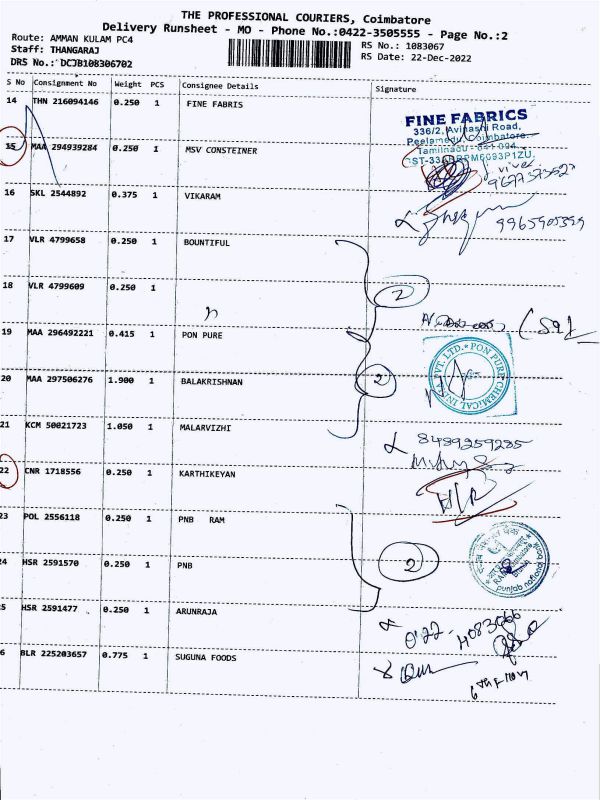 THE PROFESSIONAL COURIERS, Coimbatore
Delivery Runsheet - MO - Phone No.:0422-3505555 - Page No.:2
Route: AMMAN KULAM PC4
Staff: THANGARAJ
DRS No.: DCJB108306702
RS No.: 1083067
RS Date: 22-Dec-2022
S No Consignment No Weight PCS Consignee Details Signature
14 THN 216094146 0.250 1 FINE FABRIS
FINE FABRICS
336/2, Avinashi Road,
Peelamedu, Coimbatore,
Tamilnadu - 641 094
15 MAA 294939284 0.250 1 MSV CONSTEINER
16 SKL 2544892 0.375 1 VIKARAM
9965905399
17 VLR 4799658 0.250 1 BOUNTIFUL
18 VLR 4799609 0.250 1
2
19 MAA 296492221 0.415 1 PON PURE
PON PURE CHEMICAL INDIA PVT. LTD.
20 MAA 297506276 1.900 1 BALAKRISHNAN
2
21 KCM 50021723 1.050 1 MALARVIZHI
8489259285
22 CNR 1718556 0.250 1 KARTHIKEYAN
23 POL 2556118 0.250 1 PNB RAM
24 HSR 2591570 0.250 1 PNB
2
punjab national bank
25 HSR 2591477 0.250 1 ARUNRAJA
6 BLR 225203657 0.775 1 SUGUNA FOODS